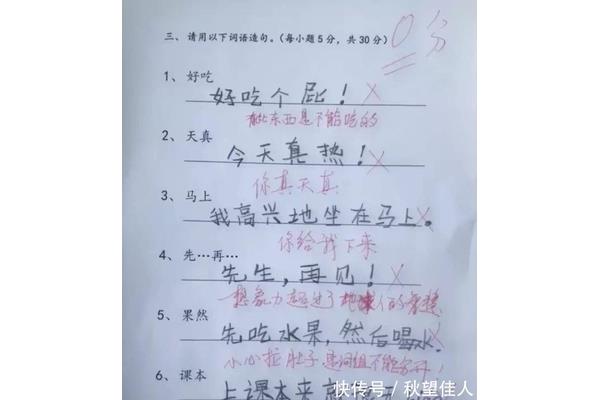 三、请用以下词语造句。(每小题5分，共30分)
0分
1、好吃
好吃个屁！
有些东西是不能吃的
2、天真
今天真热！
你真天真
3、马上
我高兴地坐在马上。
你给我下来
4、先…再…
先生，再见！
想象力超过了地球人的
5、果然
先吃水果，然后喝水。
小心拉肚子 是词组不能分开！
6、课本
上课本来就
快传号/秋望佳人